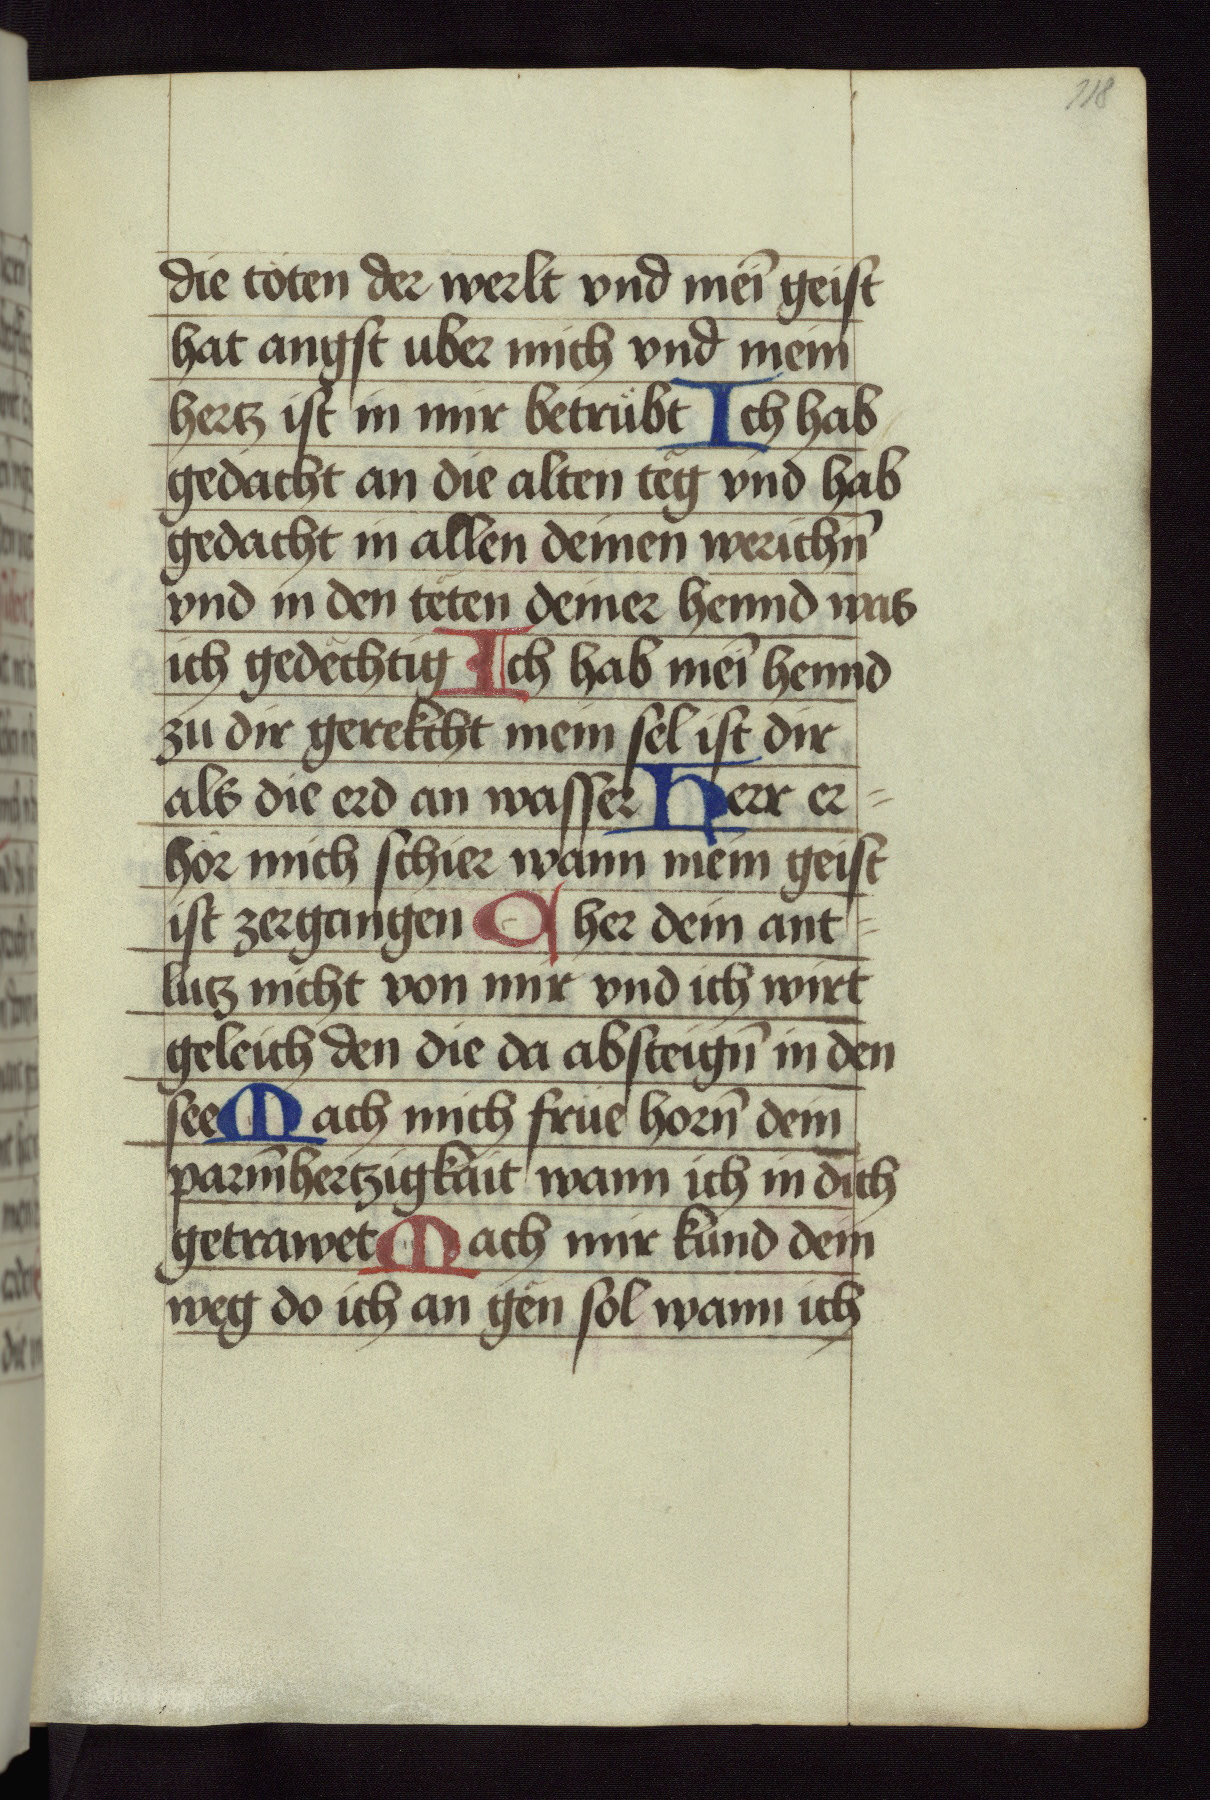 118
die töten der werlt vnd mei͞ geist
hat angst uber mich vnd mein
hertz ist in mir betrübt Ich hab
gedacht an die alten teg vnd hab
gedacht in allen deinen werichn̄
vnd in den teten deiner hennd was
ich gedechtig Ich hab mei͞ hennd
zu dir gerekcht mein sel ist dir
als die erd an wasser Herr er=
hör mich schier wann mein geist
ist zergangen C her dein ant=
lutz nicht von mir vnd ich wirt
geleich den die da absteign̄ in den
see Mach mich frue horn̄ dein
parm̄hertzigkait wann ich in dich
getrawet Mach mir kund dein
weg do ich an gen sol wann ich